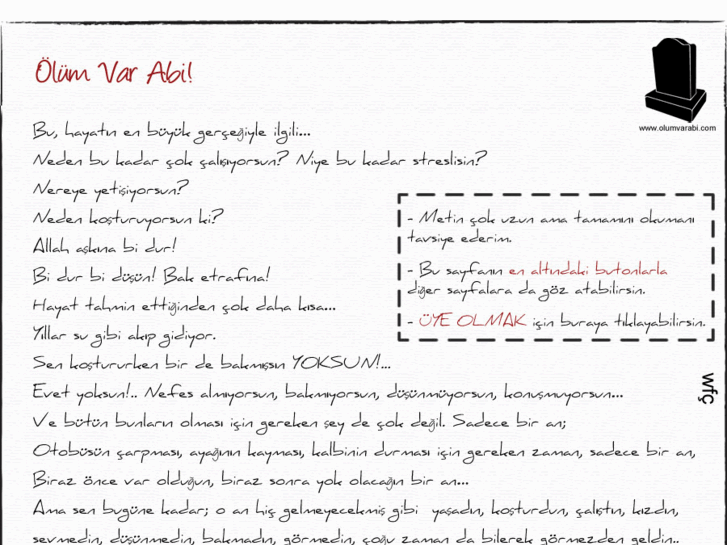 Ölüm Var Abi!
www.olumvarabi.com
Bu, hayatın en büyük gerçeğiyle ilgili...
Neden bu kadar çok çalışıyorsun? Niye bu kadar streslisin?
Nereye yetişiyorsun?
Neden koşturuyorsun ki?
Allah aşkına bi dur!
Bi dur bi düşün! Bak etrafına!
Hayat tahmin ettiğinden çok daha kısa...
Yıllar su gibi akıp gidiyor.
Sen koştururken bir de bakmışsın YOKSUN!...
Evet yoksun!.. Nefes almıyorsun, bakmıyorsun, düşünmüyorsun, konuşmuyorsun...
Ve bütün bunların olması için gereken şey de çok değil. Sadece bir an;
Otobüsün çarpması, ayağının kayması, kalbinin durması için gereken zaman, sadece bir an,
Biraz önce var olduğun, biraz sonra yok olacağın bir an...
Ama sen bugüne kadar; o an hiç gelmeyecekmiş gibi yaşadın, koşturdun, çalıştın, kızdın,
sevmedin, düşünmedin, bakmadın, görmedin, çoğu zaman da bilerek görmezden geldin..
- Metin çok uzun ama tamamını okumanı
tavsiye ederim.
- Bu sayfanın en altındaki butonlarla
diğer sayfalara da göz atabilirsin.
- ÜYE OLMAK için buraya tıklayabilirsin.
wfç